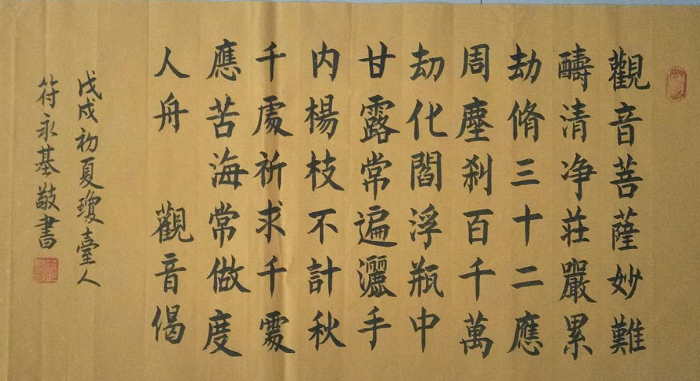 觀音菩薩妙難
醻清净莊嚴累
劫脩三十二應
周塵刹百千萬
劫化閻浮瓶中
甘露常遍灑手
内楊枝不計秋
千處祈求千處
應苦海常做度
人舟 觀音偈
戊戌初夏瓊臺人
符永基敬書